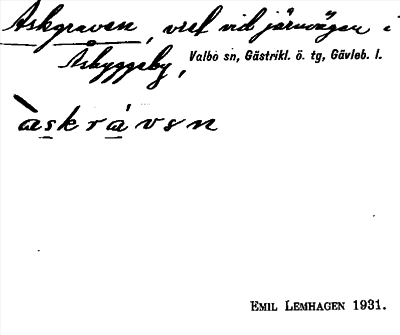 Askgraven, vret vid järnvägen i
Åbyggeby, Valbo sn, Gästrikl. ö. tg, Gävleb. l.
àskrávɘn
EMIL LEMHAGEN 1931.